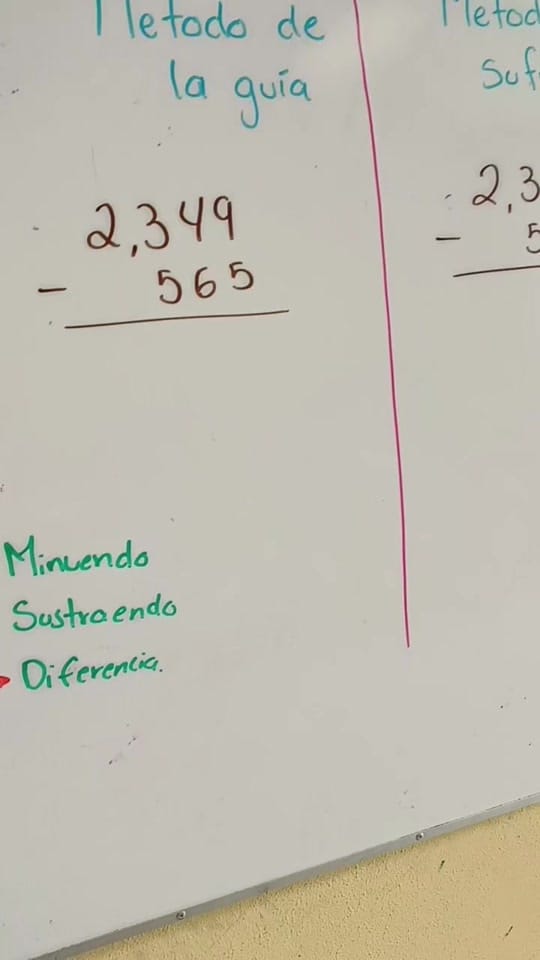 Metodo de
la guía
2,349
- 565
Minuendo
Sustraendo
Diferencia.
2,3
- 5